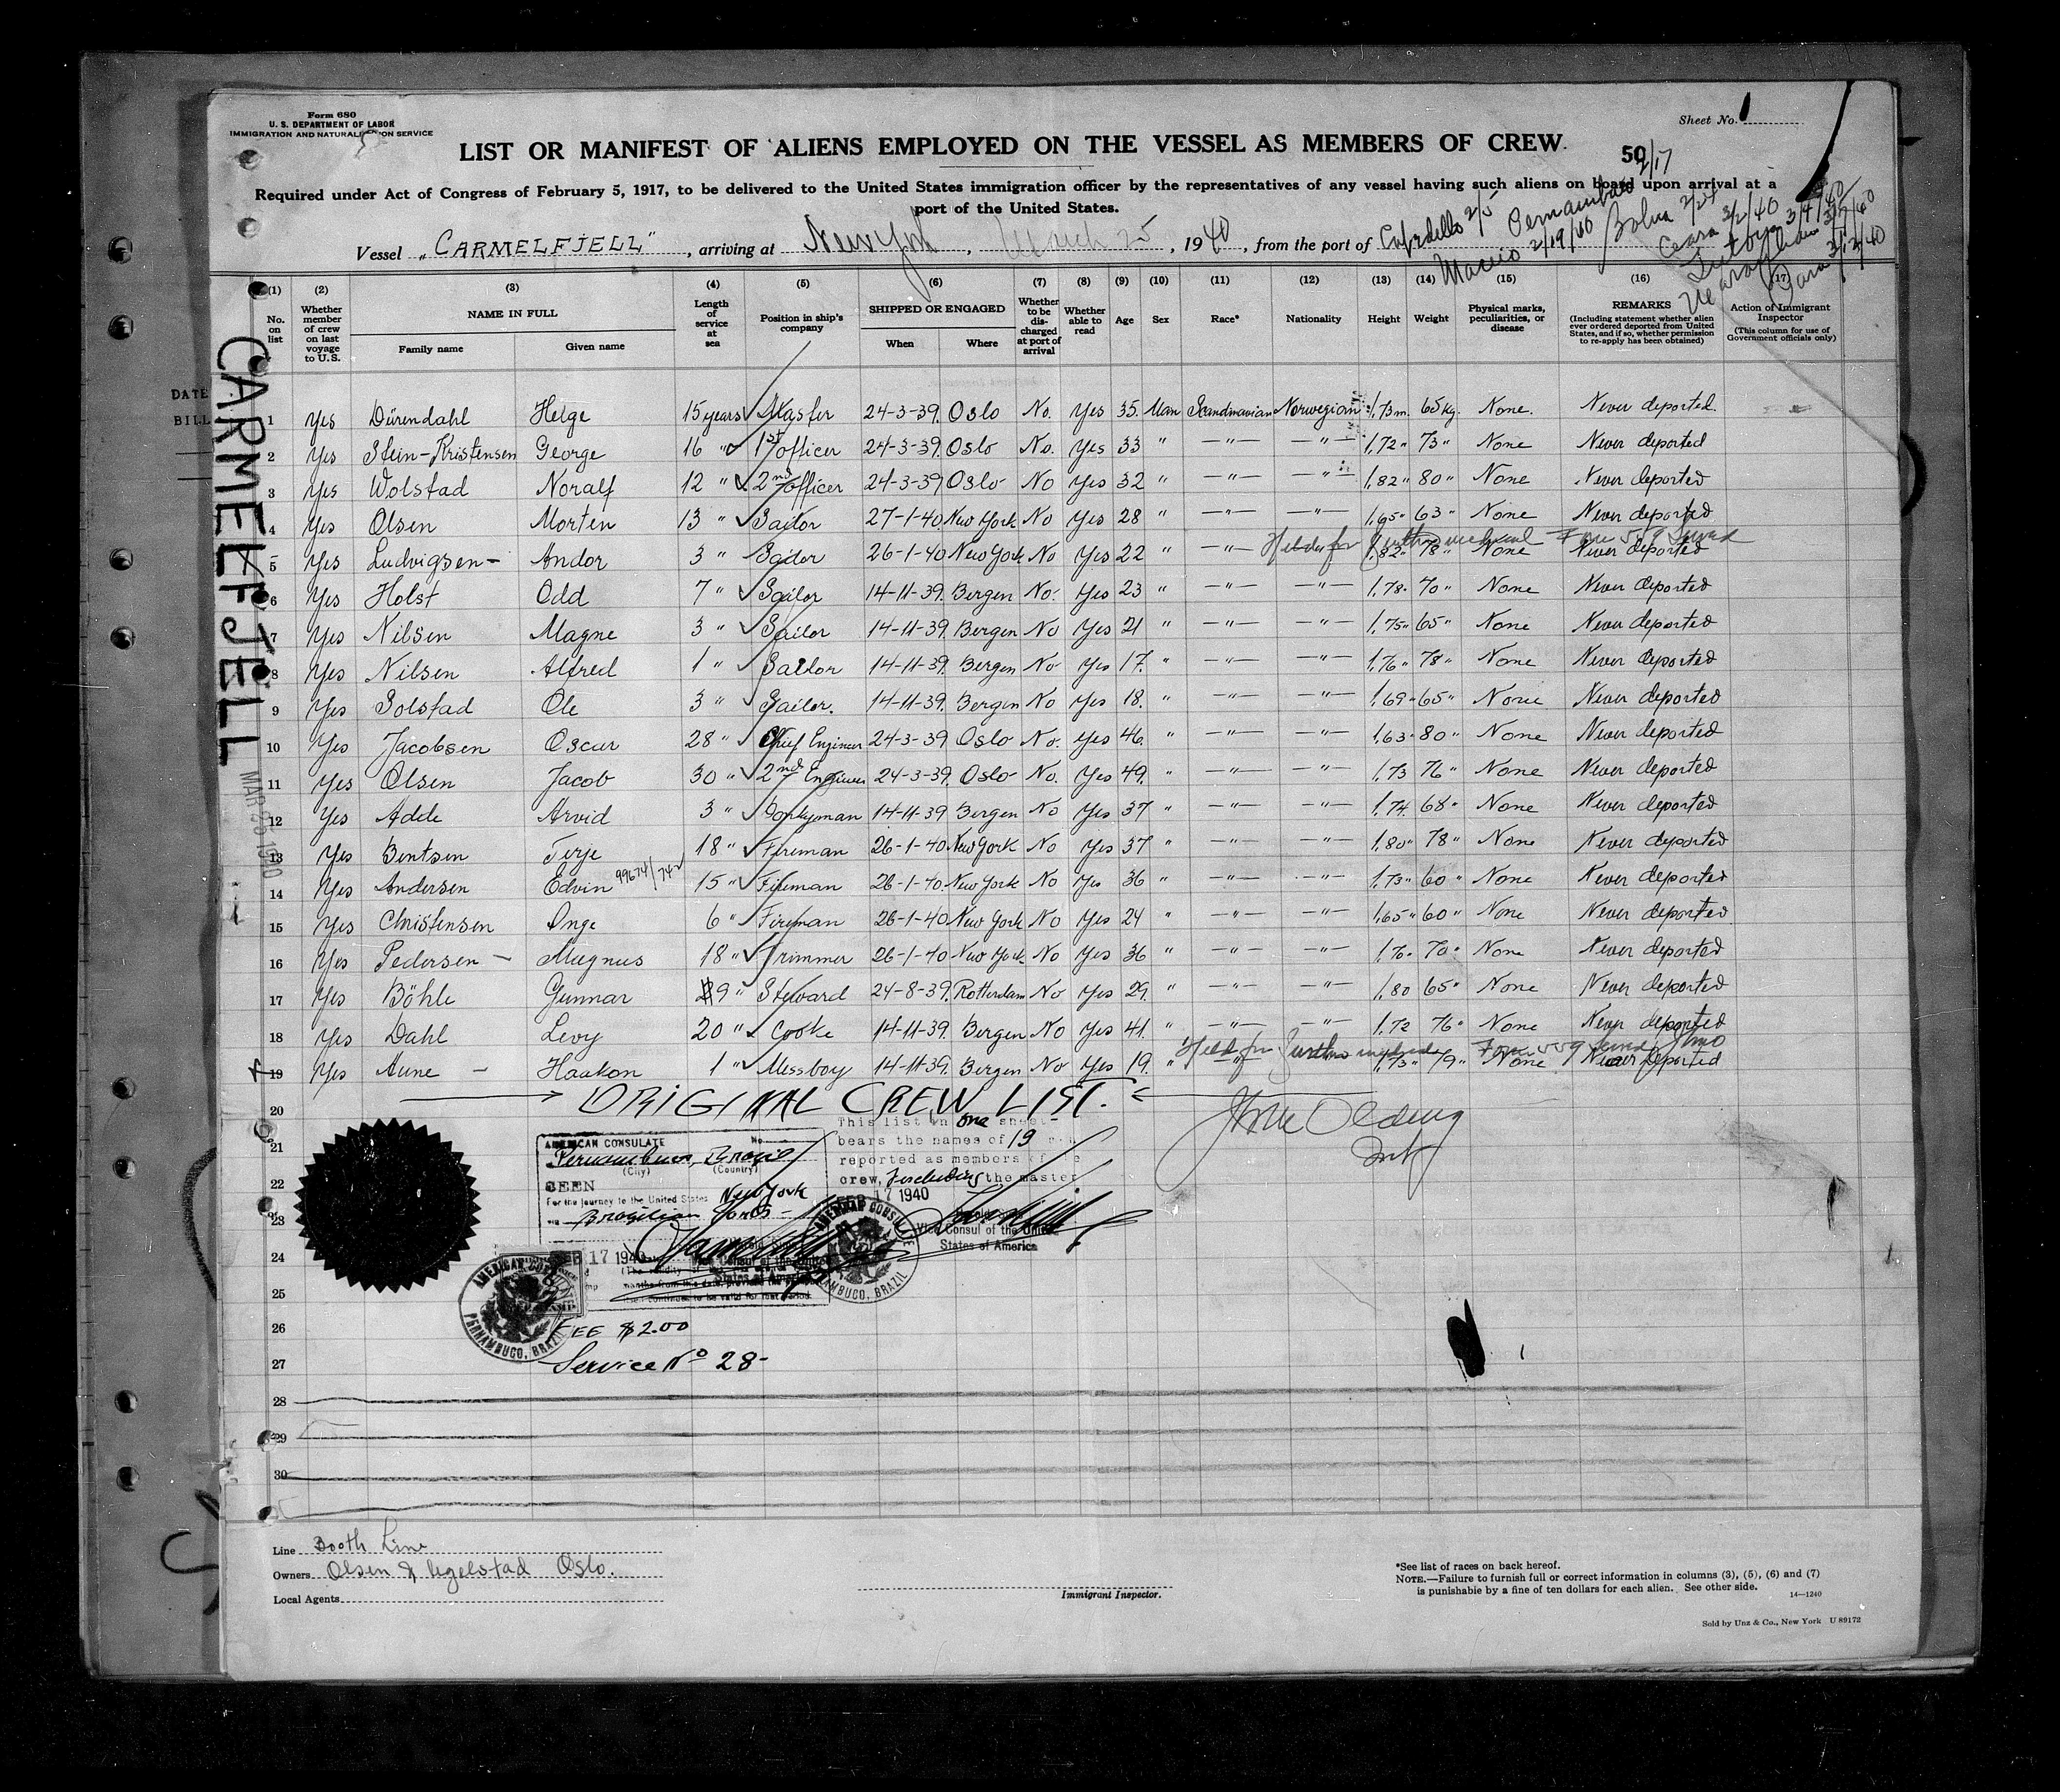 Form 680
U. S. DEPARTMENT OF LABOR
IMMIGRATION AND NATURALIZATION SERVICE
Sheet No. 1
LIST OR MANIFEST OF ALIENS EMPLOYED ON THE VESSEL AS MEMBERS OF CREW
50
2/17
Required under Act of Congress of February 5, 1917, to be delivered to the United States immigration officer by the representatives of any vessel having such aliens on board upon arrival at a
port of the United States.
Vessel "CARMELFJELL", arriving at New York, March 25, 1940, from the port of Cabedello 2/5 Pernambuco
Maceio 2/19/40
Ceara 3/2/40
Para 3/12/40
(1) (2) (3) (4) (5) (6) (7) (8) (9) (10) (11) (12) (13) (14) (15) (16) (17)
No. on list
Whether member of crew on last voyage to U.S.
NAME IN FULL
Family name
Given name
Length of service at sea
Position in ship's company
SHIPPED OR ENGAGED
When
Where
Whether to be discharged at port of arrival
Whether able to read
Age
Sex
Race*
Nationality
Height
Weight
Physical marks, peculiarities, or disease
REMARKS
(Including statement whether alien ever ordered deported from United States, and if so, whether permission to re-apply has been obtained)
Action of Immigrant Inspector
(This column for use of Government officials only)
DATE
BILL
CARMELFJELL
MAR 25 1940
1 Yes Dürendahl Helge 15 years Master 24-3-39. Oslo No. Yes 35. Man Scandinavian Norwegian 1,73 m. 65 kg. None. Never deported.
2 Yes Stein-Kristensen George 16 " 1st officer 24-3-39. Oslo No. Yes 33 " —"— —"— 1,72 " 73 " None Never deported
3 Yes Wolstad Noralf 12 " 2nd officer 24-3-39 Oslo No Yes 32 " —"— —"— 1,82 " 80 " None Never deported
4 Yes Olsen Morten 13 " Sailor 27-1-40 New York No Yes 28 " —"— —"— 1,65 " 63 " None Never deported
Held for further medical Form 559 served
5 Yes Ludvigsen - Andor 3 " Sailor 26-1-40 New York No Yes 22 " —"— —"— 1,82 " 78 " None Never deported
6 Yes Holst Odd 7 " Sailor 14-11-39. Bergen No. Yes 23 " —"— —"— 1,78 " 70 " None Never deported
7 Yes Nilsen Magne 3 " Sailor 14-11-39. Bergen No Yes 21 " —"— —"— 1,75 " 65 " None Never deported
8 Yes Nilsen Alfred 1 " Sailor 14-11-39. Bergen No Yes 17. " —"— —"— 1,76 " 78 " None Never deported
9 Yes Solstad Ole 3 " Sailor. 14-11-39. Bergen No Yes 18. " —"— —"— 1,69 " 65 " None Never deported
10 Yes Jacobsen Oscar 28 " Chief Engineer 24-3-39 Oslo No. Yes 46. " —"— —"— 1,63 " 80 " None Never deported
11 Yes Olsen Jacob 30 " 2nd Engineer 24-3-39. Oslo No. Yes 49. " —"— —"— 1,73 76 " None Never deported
12 Yes Adde Arvid 3 " Donkyman 14-11-39 Bergen No Yes 37 " —"— —"— 1,74 68 " None Never deported
13 Yes Bentsen Terje 18 " Fireman 26-1-40 New York No Yes 37 " —"— —"— 1,80 " 78 " None Never deported
14 Yes Andersen Edvin 99674/742 15 " Fireman 26-1-40. New York No Yes 36 " —"— —"— 1,73 " 60 " None Never deported
15 Yes Christensen Inge 6 " Fireman 26-1-40 New York No Yes 24 " —"— —"— 1,65 " 60 " None Never deported
16 Yes Pedersen - Magnus 18 " Trimmer 26-1-40 New York No Yes 36 " —"— —"— 1,70 " 70 " None Never deported
17 Yes Böhle Gunnar 9 " Steward 24-8-39. Rotterdam No Yes 29. " —"— —"— 1,80 65 " None Never deported
18 Yes Dahl Levy 20 " Cooke 14-11-39. Bergen No Yes 41. " —"— —"— 1,72 76 " None Never deported
Held for further medical Form 559 served
19 Yes Aune - Haakon 1 " Messboy 14-11-39. Bergen No Yes 19. " 1,73 " 79 " None Never deported
20 ORIGINAL CREW LIST.
21
22
23
24
25
26
27
28
29
30
AMERICAN CONSULATE No.
Pernambuco, Brazil
(City) (Country)
SEEN
For the journey to the United States New York
via Brazilian Ports -
FEB 17 1940
Vice Consul of the United
States of America
This list in one sheet
bears the names of 19
reported as members of the
crew, including the master
FEB 17 1940
Vice Consul of the United
States of America
AMERICAN CONSULATE
PERNAMBUCO, BRAZIL
AMERICAN CONSULATE
PERNAMBUCO, BRAZIL
FEE $2.00
Service No 28-
Line Booth Line
Owners Olsen & Ugelstad Oslo.
Local Agents
Immigrant Inspector.
*See list of races on back hereof.
NOTE.—Failure to furnish full or correct information in columns (3), (5), (6) and (7)
is punishable by a fine of ten dollars for each alien. See other side.
14—1240
Sold by Unz & Co., New York U 89172